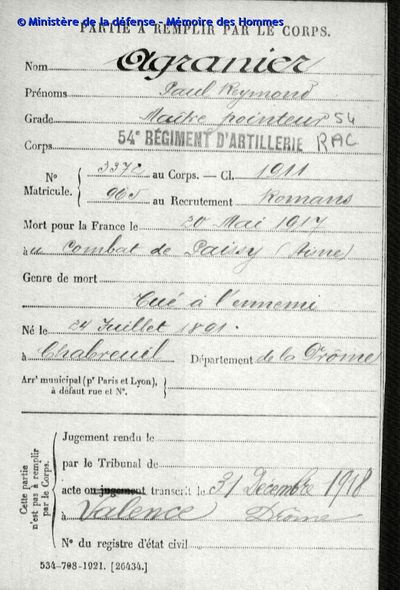 © Ministère de la défense - Mémoire des Hommes
PARTIE À REMPLIR PAR LE CORPS.
Nom Agranier
Prénoms Paul Reymond
Grade Maître pointeur 54
Corps 54e RÉGIMENT D'ARTILLERIE RAC
No 3372 au Corps. — Cl. 1911
Matricule. 905 au Recrutement Romans
Mort pour la France le 20 Mai 1917
à au combat de Paissy (Aisne)
Genre de mort
Tué à l'ennemi
Né le 24 Juillet 1891.
à Chabreuil Département de la Drôme
Arrt municipal (pr Paris et Lyon),
à défaut rue et No.
Cette partie
n'est pas à remplir
par le Corps.
Jugement rendu le
par le Tribunal de
acte ou jugement transcrit le 31 Decembre 1918
à Valence Drôme
No du registre d'état civil
534-708-1921. [26434.]